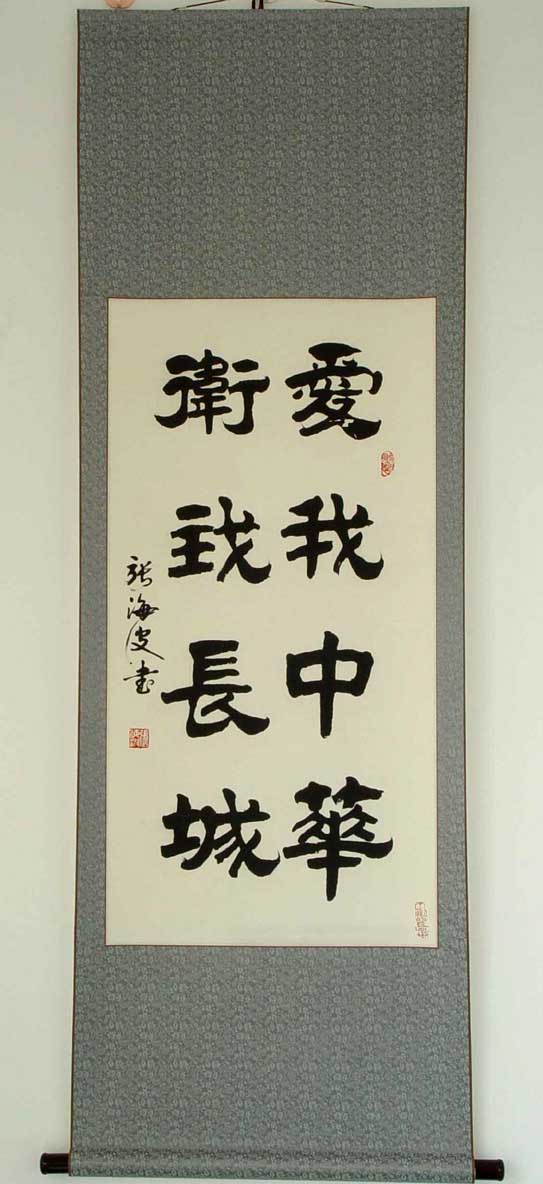 愛我中華
衛我長城
張海波書